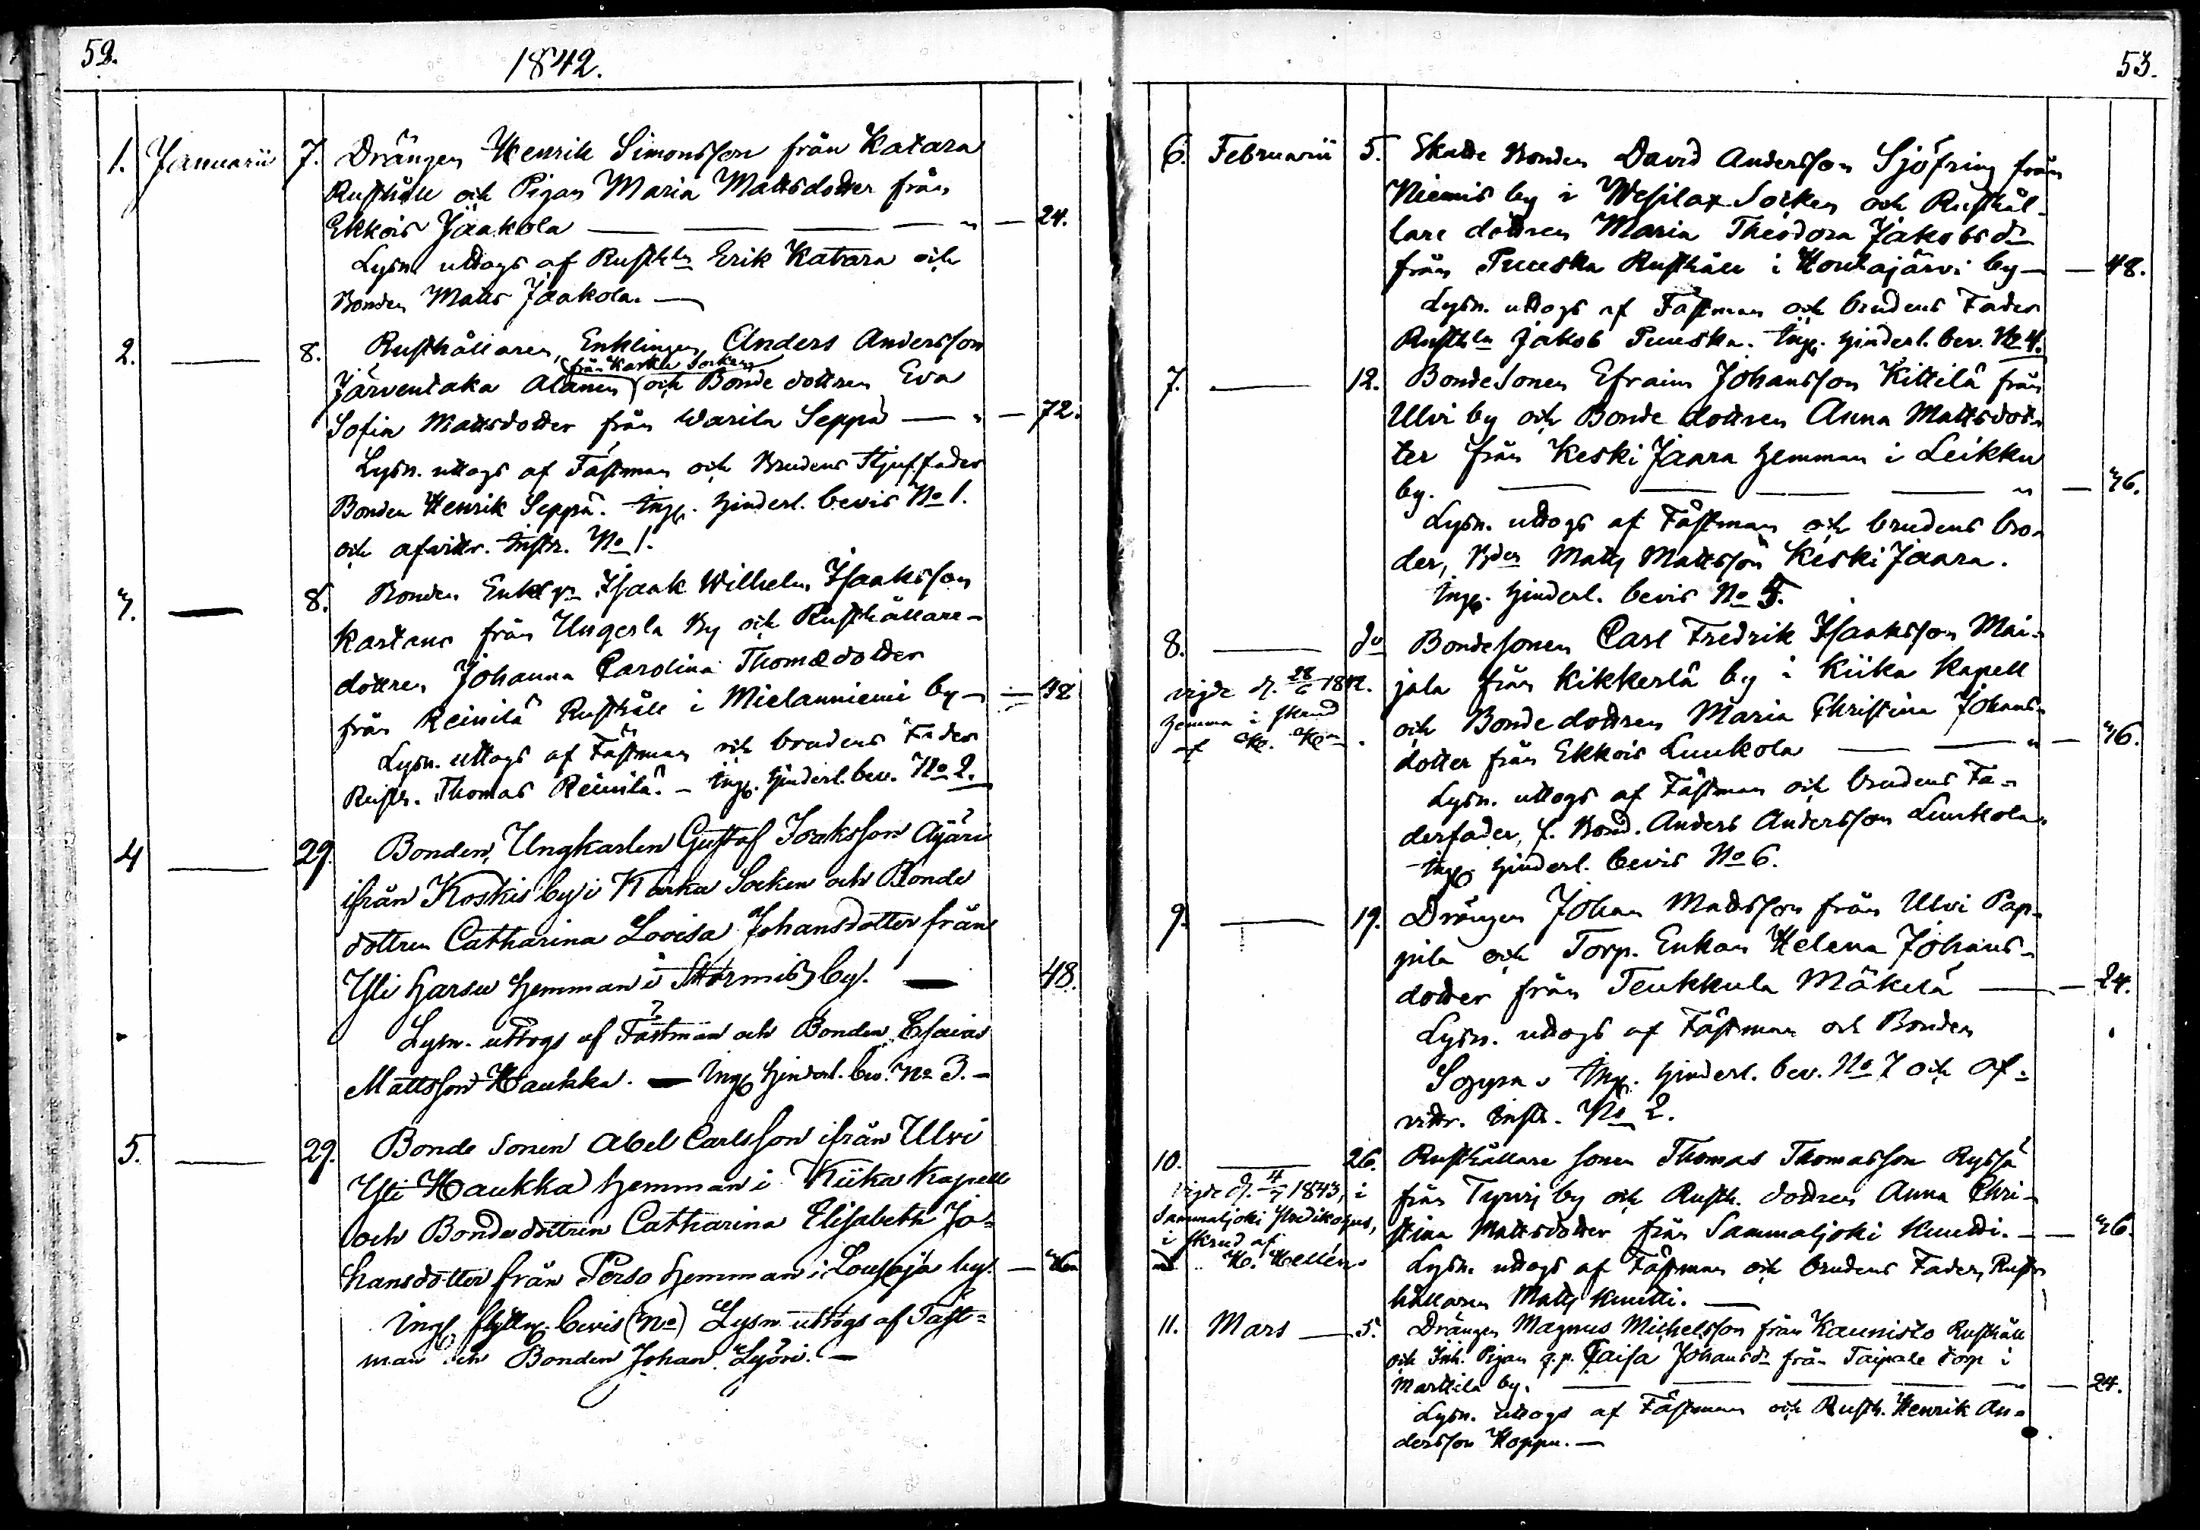 52.
1842.
1. Januarii 7. Drängen Henrik Simonsson från Katara
Rusthåll och Pigan Maria Mattsdotter från
Ekkois Jaakola — — — — " — 24.
Lysn. uttogs af Rusth:ln Erik Katara och
Bonden Matts Jaakola. —
2. — 8. Rusthållaren, Enklingen, Anders Andersson
(från Karku Socken)
Järventaka Alanen och Bonde dottren Eva
Sofia Mattsdotter från Warila Seppä — " — 72.
Lysn. uttogs af Fästman och Brudens Stjuffader
Bonden Henrik Seppä. Ingg. hinderl. bevis No 1.
och afvittr. Instr. No 1.
3. — 8. Bonden Enkl:gn Isaak Wilhelm Isaaksson
Kartano från Ungerla By och Rusthållare-
dottren Johanna Carolina Thomædotter
från Reinilä Rusthåll i Mielanniemi by — — 48
Lysn. uttogs af Fästman och brudens Fader
Rusth. Thomas Reinilä. — Ingg. hinderl. bev. No 2.
4 — 29. Bonden, Ungkarlen Gustaf Isaksson Äijäri
ifrån Koskis by i Karku Socken och Bonde
dottren Catharina Lovisa Johansdotter från
Yli Harsu Hemman i Stormis by. — 48.
Lysn. uttogs af Fästman och Bonden Esaias
Mattsson Haukka. — Ingg. hinderl. bev. No 3. —
5. — 29. Bonde Sonen Abel Carlsson ifrån Ulvi
Yli Haukka hemman i Kiika Kapell
och Bondedottren Catharina Elisabeth Jo=
hansdotter från Perso Hemman i Lousaja by. —
Ingf. flyttn. bevis (No) Lysn. uttogs af Fäst=
man och Bonden Johan. —
53.
6. Februarii 5. Skatte Bonden David Andersson Sjöfring från
Niemis by i Wesilax Socken och Rusthål-
lare dottren Maria Theodora Jakobsd:r
från Puuska Rusthåll i Houhajärvi by — — 48.
Lysn. uttogs af Fästman och brudens Fader
Rusth:ln Jakob Puuska. Ingg. hinderl. bev. No 4.
7. — 12. Bondesonen Efraim Johansson Kittilä från
Ulvi by och Bonde dottren Anna Mattsdot-
ter från Keski Jaara Hemman i Leikku
by. — — — — " — 36.
Lysn. uttogs af Fästman och brudens bro-
der, B:den Matts Mattsson Keski Jaara.
Ingg. hinderl. bevis No 5.
8. — do Bondesonen Carl Fredrik Isaaksson Mai-
jala från Kikkerlä by i Kiika Kapell
vigde d. 28/6 1842.
hemma i
af K.
och Bondedottren Maria Christina Johans-
dotter från Ekkois Luukola — — " — 36.
Lysn. uttogs af Fästman och brudens Fa-
derfader, f. Bond. Anders Andersson Luukola.
Ingg. hinderl. bevis No 6.
9. — 19. Drängen Johan Mattsson från Ulvi Pap-
pila och Torp. Enkan Helena Johans-
dotter från Teukkula Mäkelä — — 24.
Lysn. uttogs af Fästman och Bonden
Soppa. Ingg. hinderl. bev. No 7 och af-
vittr. Instr. No 2.
10. — 26. Rusthållare sonen Thomas Thomasson Ryssä
från Tyrvis by och Rusth. dottren Anna Chri-
stina Mattsdotter från Sammaljoki Knutti. — — 36.
vigde d. 4/7 1843, i
Sammaljoki
i af
H. Hellén.
Lysn. uttogs af Fästman och brudens Fader, Rust-
hållaren Matts Knutti. —
11. Mars — 5. Drängen Magnus Michelsson från Kaunisto Rusthåll
och Inh. Pigan q.p. Caisa Johansd:r från Taipale torp i
Marttila by. — — — — — 24.
Lysn. uttogs af Fästman och Rusth. Henrik An-
dersson Hoppu. —